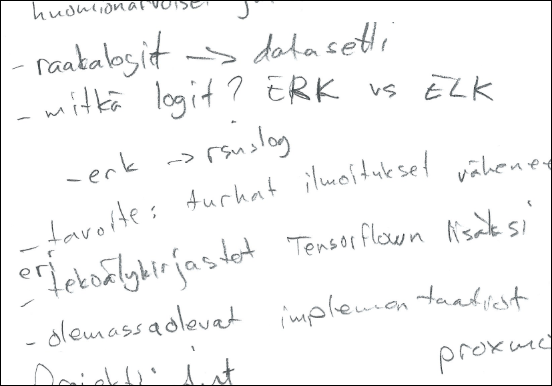 - raakalogit -> datasetti
- mitkä logit? ERK vs ELK
- erk -> rsyslog
- tavoite: turhat ilmoitukset vähenee
- eri tekoälykirjastot Tensorflown lisäksi
- olemassaolevat implementaatiot